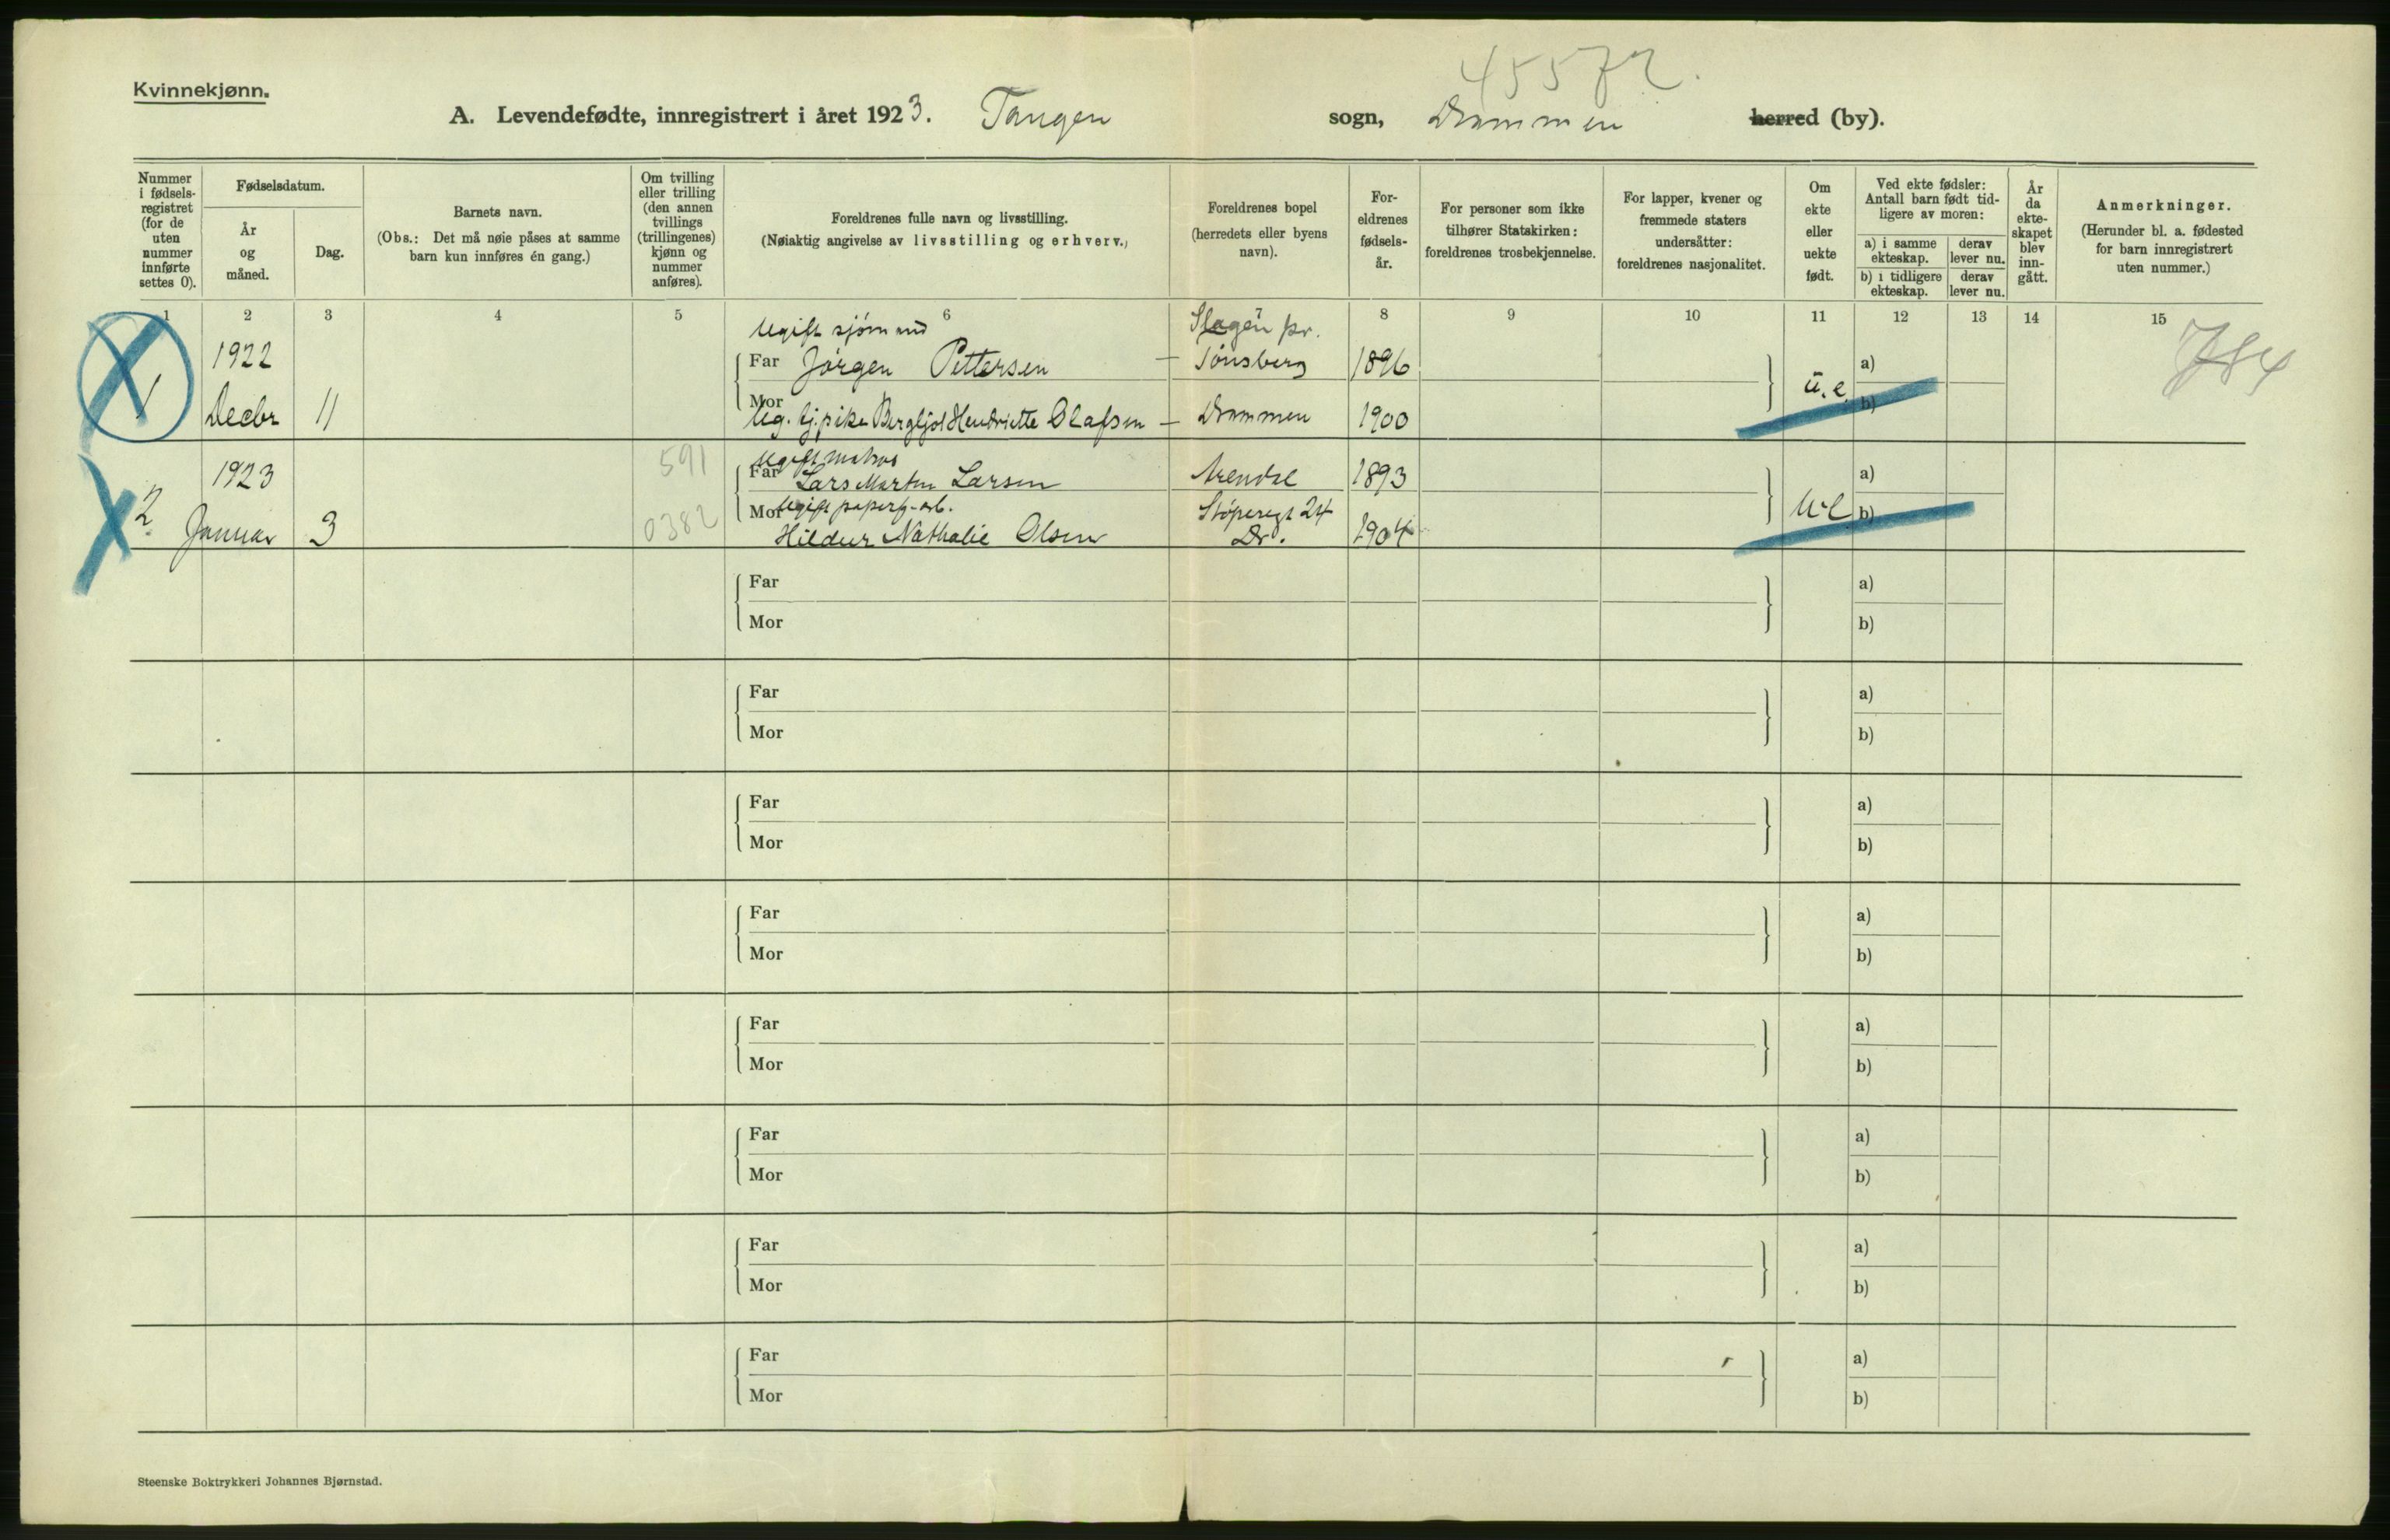 45572.
Kvinnekjønn.
A. Levendefødte, innregistrert i året 1923. Tangen sogn, Drammen herred (by).
Nummer i fødsels-registret (for de uten nummer innførte settes 0).
Fødselsdatum.
År og måned.
Dag.
Barnets navn.
(Obs.: Det må nøie påses at samme barn kun innføres én gang.)
Om tvilling eller trilling (den annen tvillings (trillingenes) kjønn og nummer anføres).
Foreldrenes fulle navn og livsstilling.
(Nøiaktig angivelse av livsstilling og erhverv.)
Foreldrenes bopel (herredets eller byens navn).
For-eldrenes fødsels-år.
For personer som ikke tilhører Statskirken: foreldrenes trosbekjennelse.
For lapper, kvener og fremmede staters undersåtter: foreldrenes nasjonalitet.
Om ekte eller uekte født.
Ved ekte fødsler: Antall barn født tid-ligere av moren:
a) i samme ekteskap.
derav lever nu.
b) i tidligere ekteskap.
derav lever nu.
År da ekte-skapet blev inn-gått.
Anmerkninger.
(Herunder bl. a. fødested for barn innregistrert uten nummer.)
1 2 3 4 5 6 8 9 10 11 12 13 14 15
Ugift sjømand Slagen pr.
1922 Far Jörgen Pettersen – Tönsberg 1896 a) 784
1 Decbr 11 Mor u.e. b)
Ug. tj.pike Bergljot Hendriette Olafsen – Drammen 1900
591 ugift matros
1923 Far Lars Martin Larsen Arendal 1893 a)
2 Januar 3 0382 Mor ugift papirf.-arb. Støperigt 24 u.e b)
Hildur Nathalie Olsen Dr. 1904
Far a)
Mor b)
Far a)
Mor b)
Far a)
Mor b)
Far a)
Mor b)
Far a)
Mor b)
Far a)
Mor b)
Far a)
Mor b)
Far a)
Mor b)
Steenske Boktrykkeri Johannes Bjørnstad.